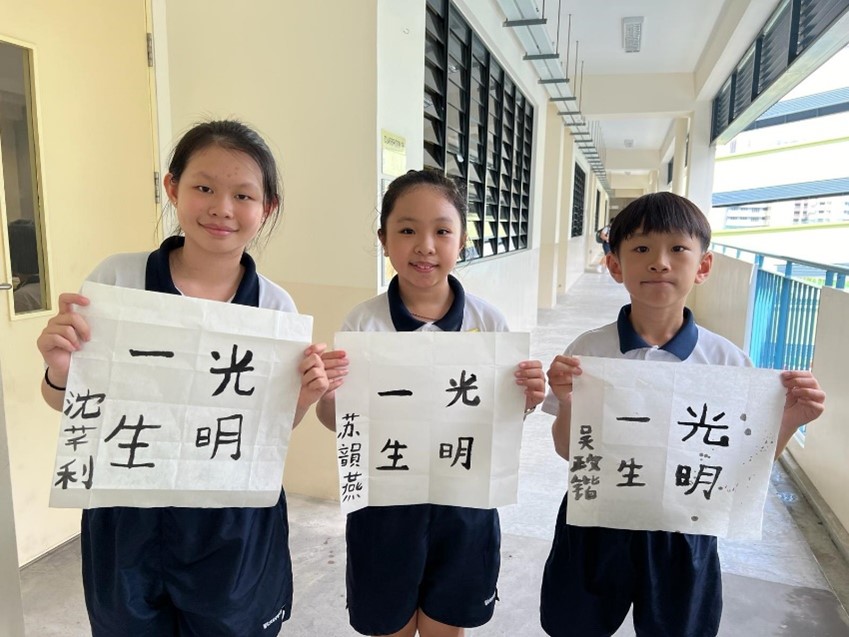 光明
一生
沈芊利
光明
一生
苏韻燕
光明
一生
吴政锴